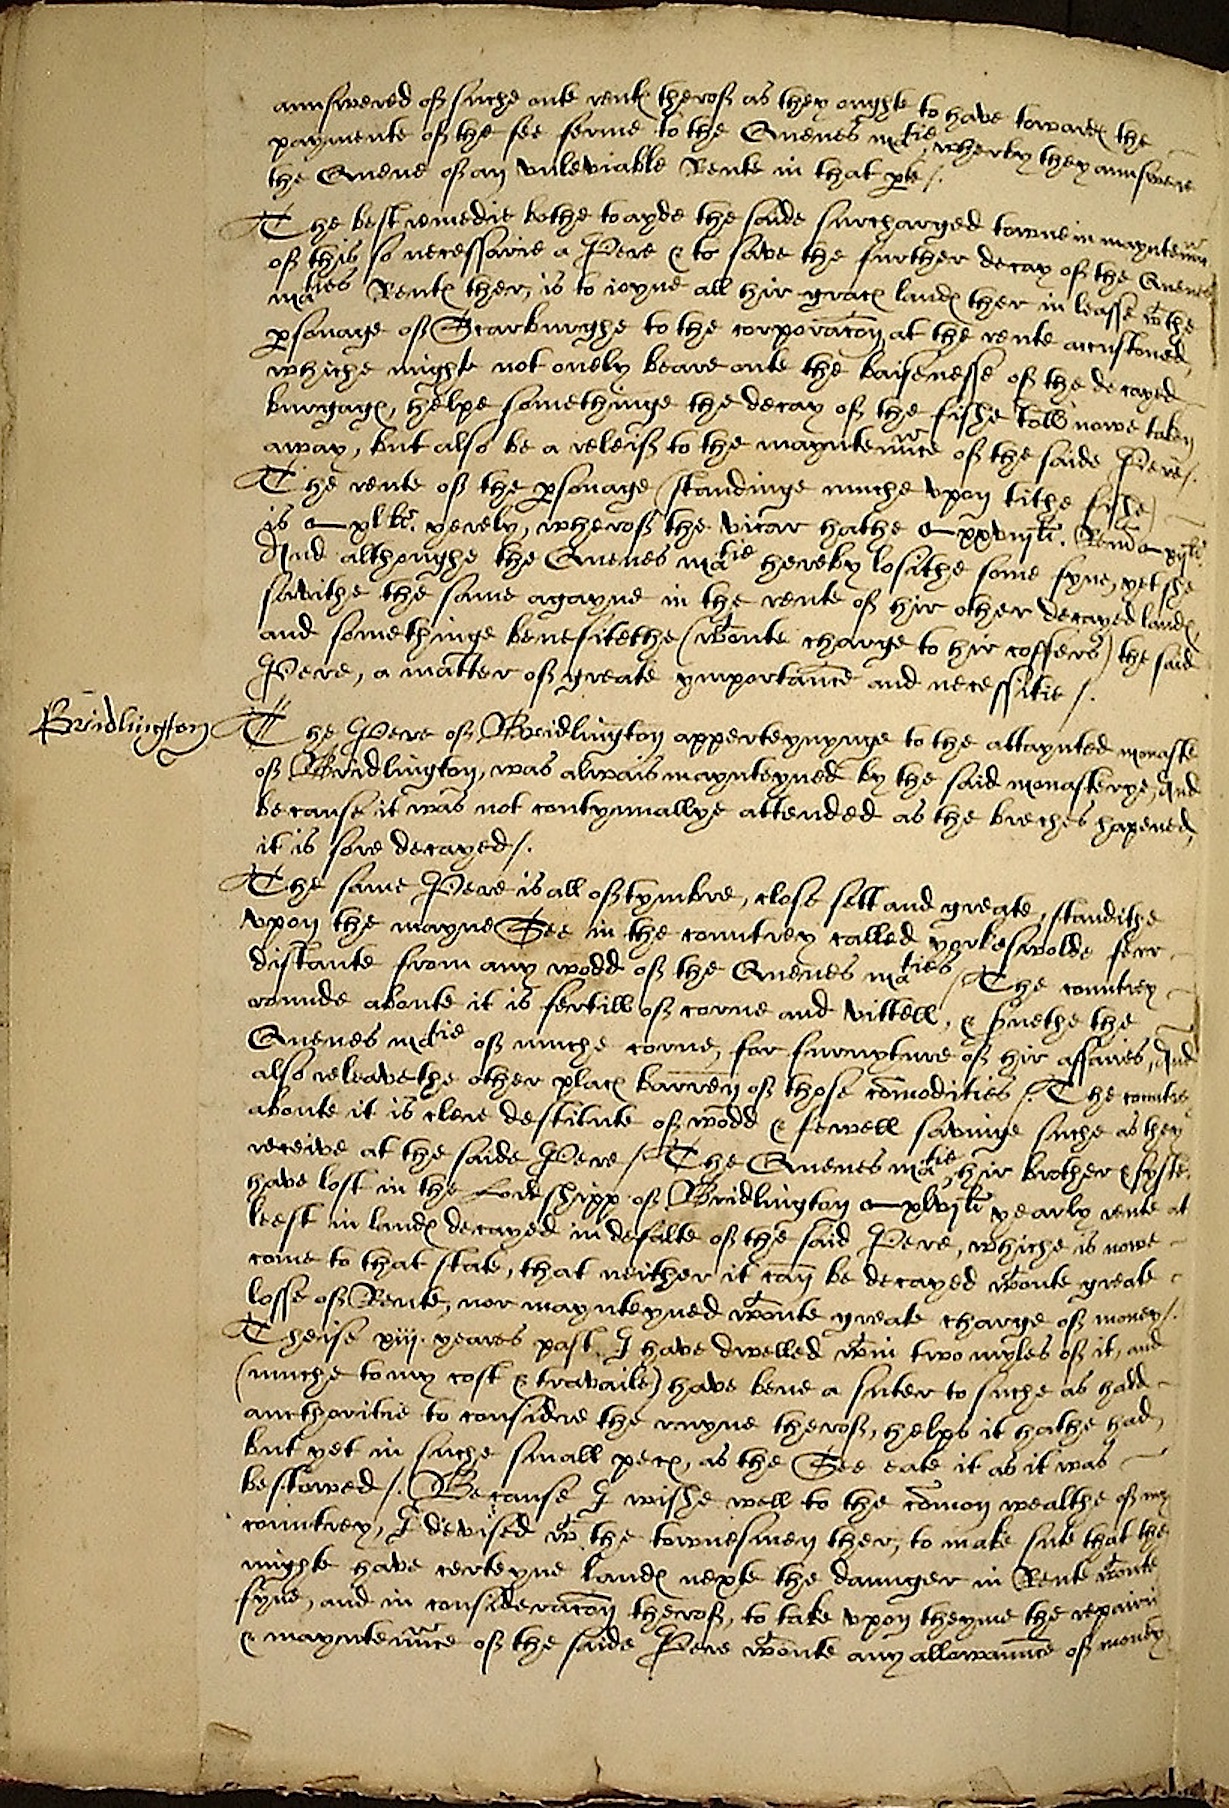 aunswered of suche oute rentℯ therof as they oughte to have towardℯ the
paymente of the fee ferme to the Quenes matie, wherby they aunswere
the Quene of an vnleviable Rente in that pte /.
The best remedie bothe to ayde the saide surcharged towne in mayntenun
of this so necessarie a Pere & to save the further decay of the Quenes
maties Rentℯ ther, is to ioyne all hir gracℯ landℯ ther in leasse wt the
psonage of Scarburghe to the corporacon, at the rente accustoned,
whiche might not onely beare oute the baisenesse of the decayed
burgagℯ, helpe somethinge the decay of the fishe toll nowe taken
away, but also be a releif to the mayntenunce of the saide Pere /.
The rente of the psonage (standinge muche vpon tithe fishe)
is xl li. yerely, wherof the vicar hathe xxviij li. Rem xij li.
And althoughe the Quenes matie hereby losithe some fyne, yet she
savithe the same agayne in the rente of hir other decayed landℯ,
and somethinge benefitethe (wtoute charge to hir coffers) the said
Pere, a matter of greate ymportance and necessitie /.
Bridlington
The Pere of Bridlington apperteynynge to the attaynted monaste
of Bridlington, was alwais maynteyned by the said monasterye, And
because it was not contynnallye attended as the breches hapened,
it is sore decayed /.
The same Pere is all of tymbre, close sett and greate, standithe
vpon the mayne See in the countrey called yorkeswolde ferr
distante from any wodd of the Quenes maties / The countrey
rounde aboute it is fertill of corne and vittell, & svethe the
Quenes matie of muche corne, for furnyture of hir affaires, And
also releavethe other placℯ barren of those comodities /. The countre
aboute it is clere destitute of wodd & fewell savinge suche as they
receive at the saide Pere / The Quenes matie, hir brother & syste
have lost in the Lordshipp of Bridlington xlvj li yearly rente at
leest in landℯ decayed in defalte of the said Pere, whiche is nowe
come to that state, that neither it can be decayed wtoute greate
losse of Rente, nor maynteyned wtoute greate charge of money /.
Theise xiij. yeares past I have dwelled wtin two myles of it, and
(muche to my cost & travaile) have bene a suter to suche as hadd
aucthoritie to considre the ruyne therof, helps it hathe had,
but yet in suche small pecℯ, as the See eate it as it was
bestowed /. Because I wishe well to the comon wealthe of my
countrey, I devised wt the townesmen ther, to make sute that the
might have certeyne landℯ nexte the daunger in Rente wtoute
fyne, and in consideracon therof, to take vpon theyme the repairi
& mayntenunce of the saide Pere wtoute any allowaunce of money